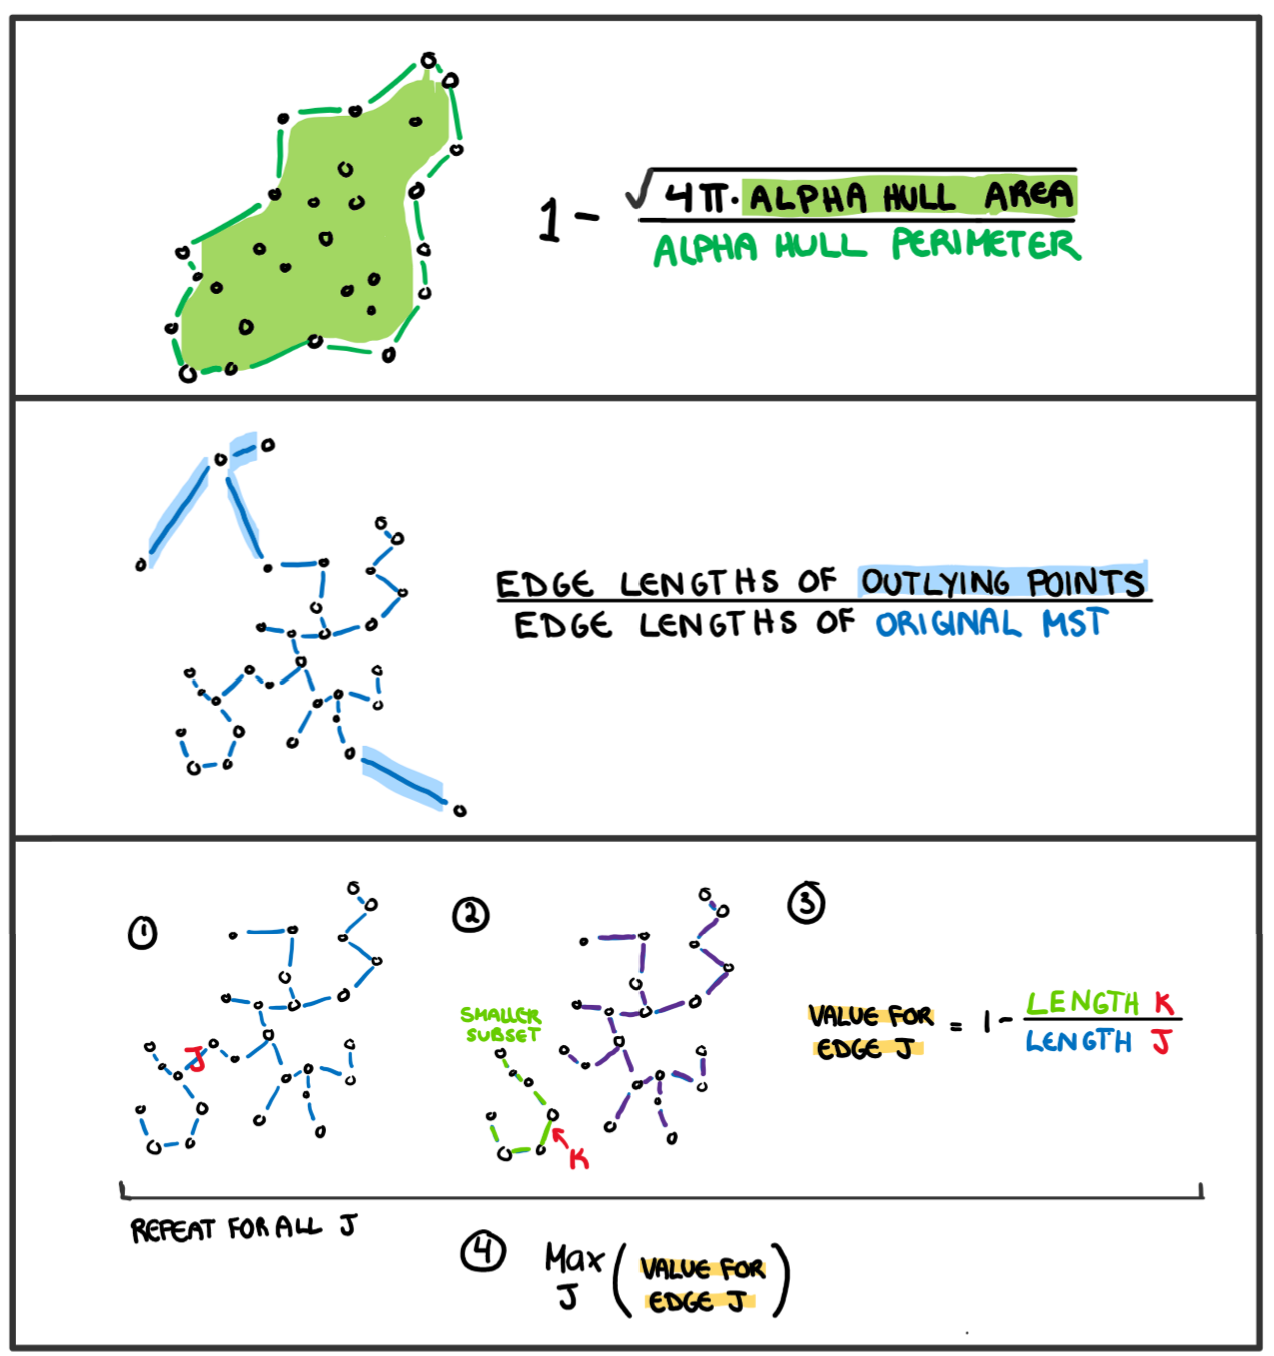 1 - √4π · ALPHA HULL AREA
ALPHA HULL PERIMETER
EDGE LENGTHS OF OUTLYING POINTS
EDGE LENGTHS OF ORIGINAL MST
1
J
2
SMALLER
SUBSET
K
3
VALUE FOR
EDGE J
= 1 - LENGTH K
LENGTH J
REPEAT FOR ALL J
4
Max
J
( VALUE FOR
EDGE J )